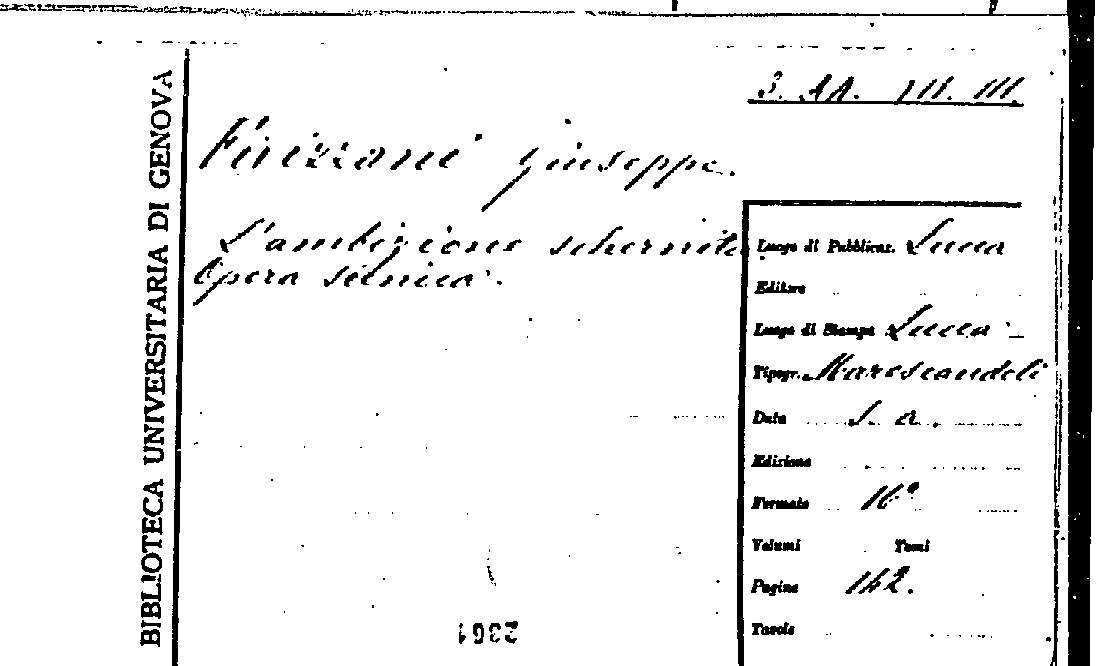 BIBLIOTECA UNIVERSITARIA DI GENOVA
3. AA. III. III.
Finizzoni Giuseppe.
L'ambizione schernita
Opera scenica.
Luogo di Pubblicaz. Lucca
Editore
Luogo di Stampa Lucca
Tipogr. Marescandoli
Data s. a.
Edizione
Formato 16°
Volumi Tomi
Pagine 142.
Tavole